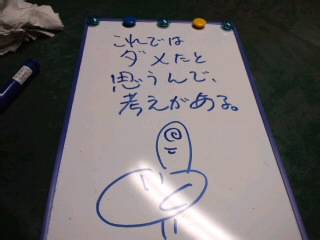 これでは
ダメだと
思うんで、
考えがある。